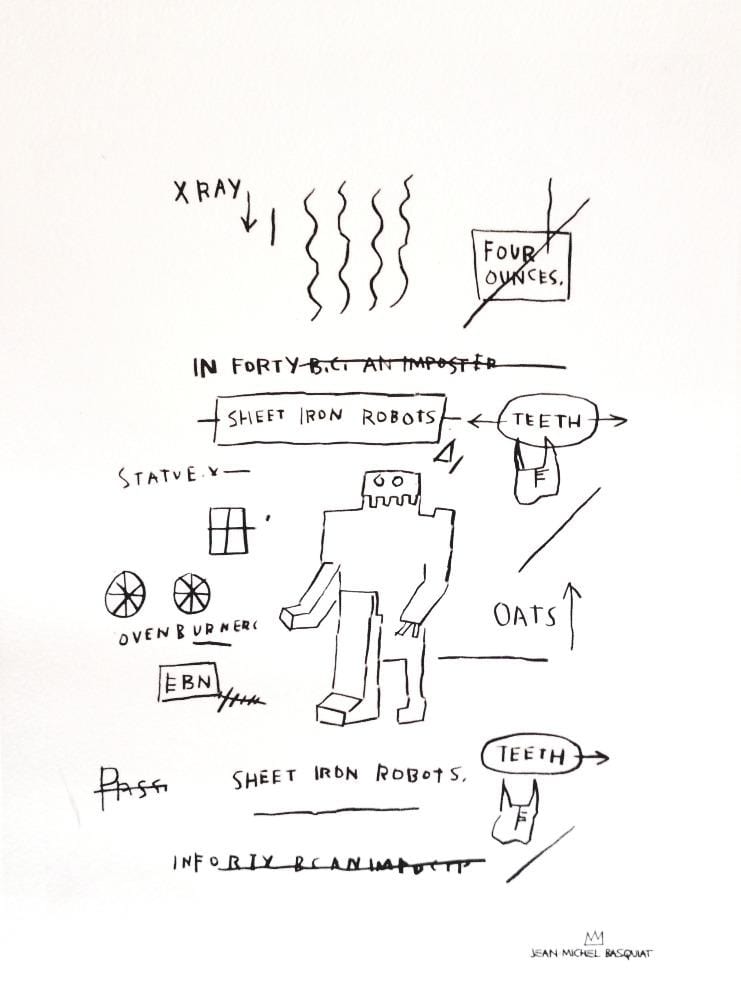 X RAY
FOUR
OUNCES.
IN FORTY B.C. AN IMPOSTER
SHEET IRON ROBOTS
TEETH
F
STATUE.X
OATS
OVENBURNERS
EBN
TEETH
Pass
SHEET IRON ROBOTS.
F
INFORTY BC AN IMPOSTE
JEAN MICHEL BASQUIAT